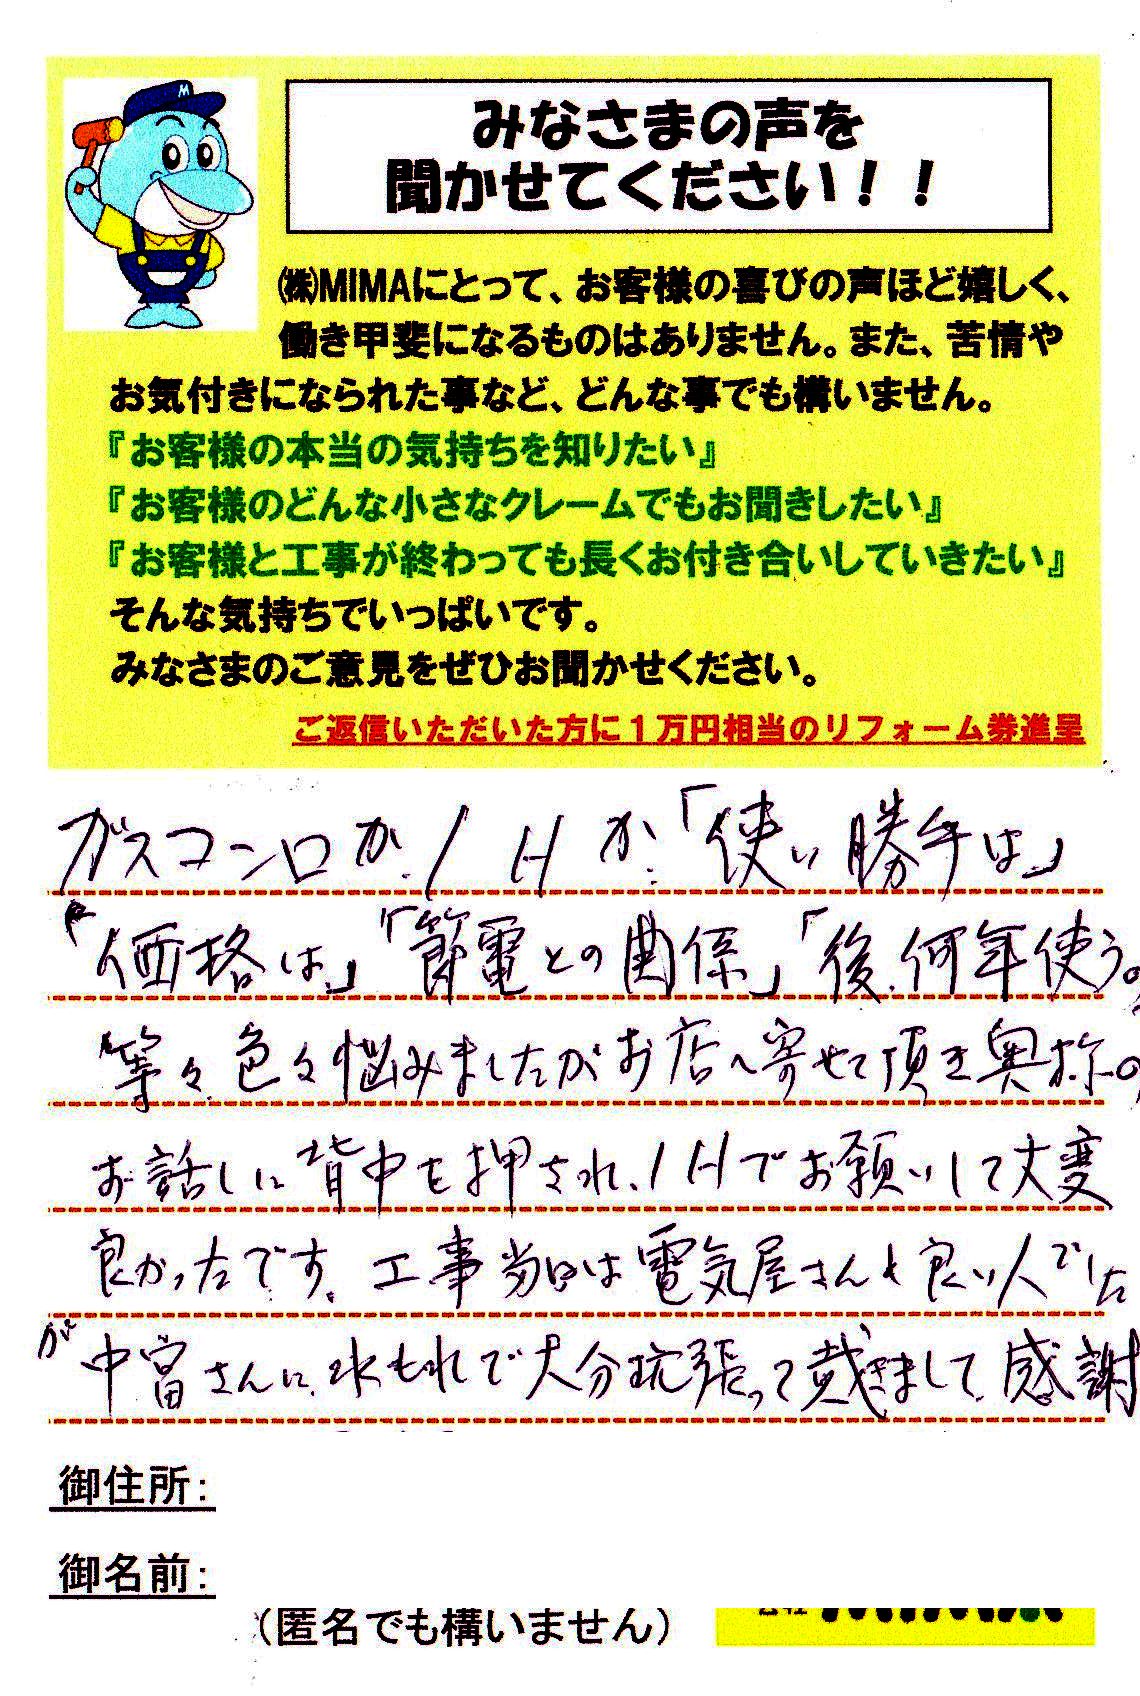 M
みなさまの声を
聞かせてください！！
㈱MIMAにとって、お客様の喜びの声ほど嬉しく、
働き甲斐になるものはありません。また、苦情や
お気付きになられた事など、どんな事でも構いません。
『お客様の本当の気持ちを知りたい』
『お客様のどんな小さなクレームでもお聞きしたい』
『お客様と工事が終わっても長くお付き合いしていきたい』
そんな気持ちでいっぱいです。
みなさまのご意見をぜひお聞かせください。
ご返信いただいた方に１万円相当のリフォーム券進呈
ガスコンロか、IHか、「使い勝手は」
「価格は」「節電との関係」「後、何年使う。
等々色々悩みましたがお店へ寄せて頂き奥称の
お話しに背中を押され、IHでお願いして大変
良かったです。工事当日は電気屋さんも良い人でした
が中富さんに、水もれで大分頑張って戴きまして、感謝
御住所：
御名前：
（匿名でも構いません）